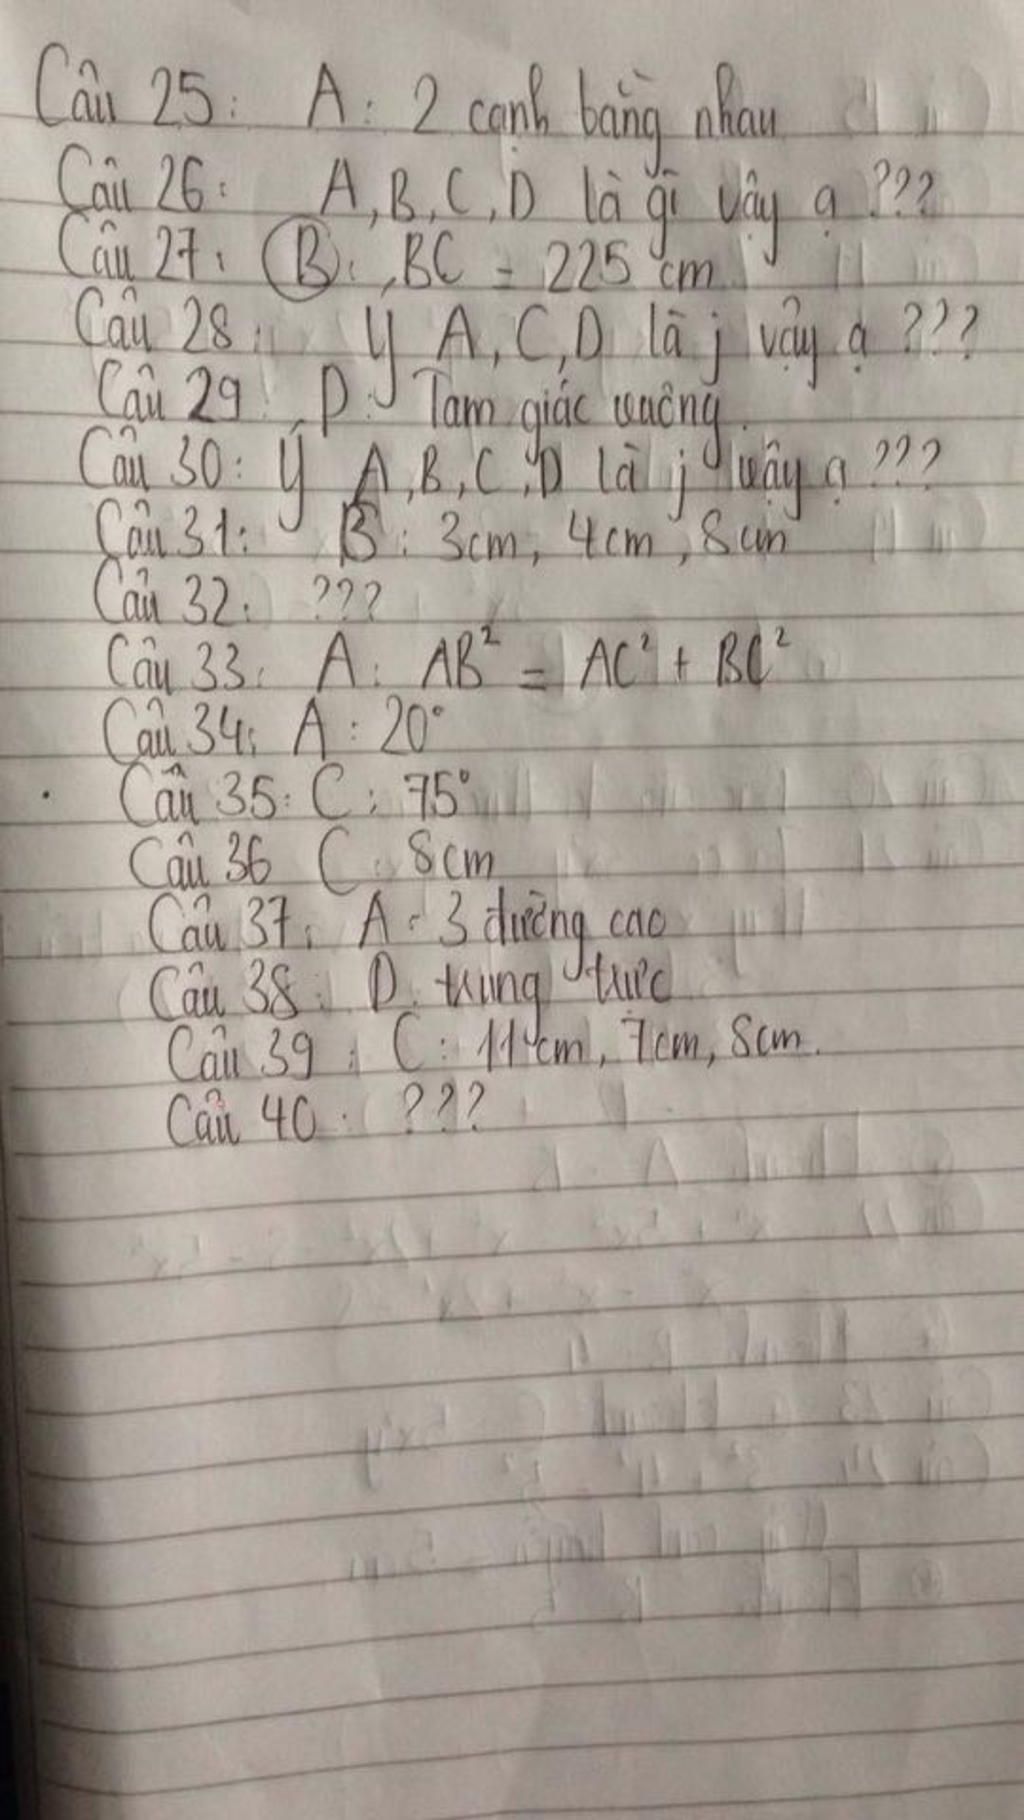 Câu 25: A: 2 cạnh bằng nhau
Câu 26: A, B, C, D là gì vậy ạ ???
Câu 27: B: BC = 225 cm
Câu 28: ý A, C, D là j vậy ạ ???
Câu 29: D: Tam giác vuông.
Câu 30: ý A, B, C, D là j vậy ạ ???
Câu 31: B: 3cm, 4cm, 8cm
Câu 32: ???
Câu 33: A: AB² = AC² + BC²
Câu 34: A: 20°
Câu 35: C: 75°
Câu 36 C: 8cm
Câu 37: A: 3 đường cao
Câu 38: D: trung trực
Câu 39: C: 11cm, 7cm, 8cm.
Câu 40: ???